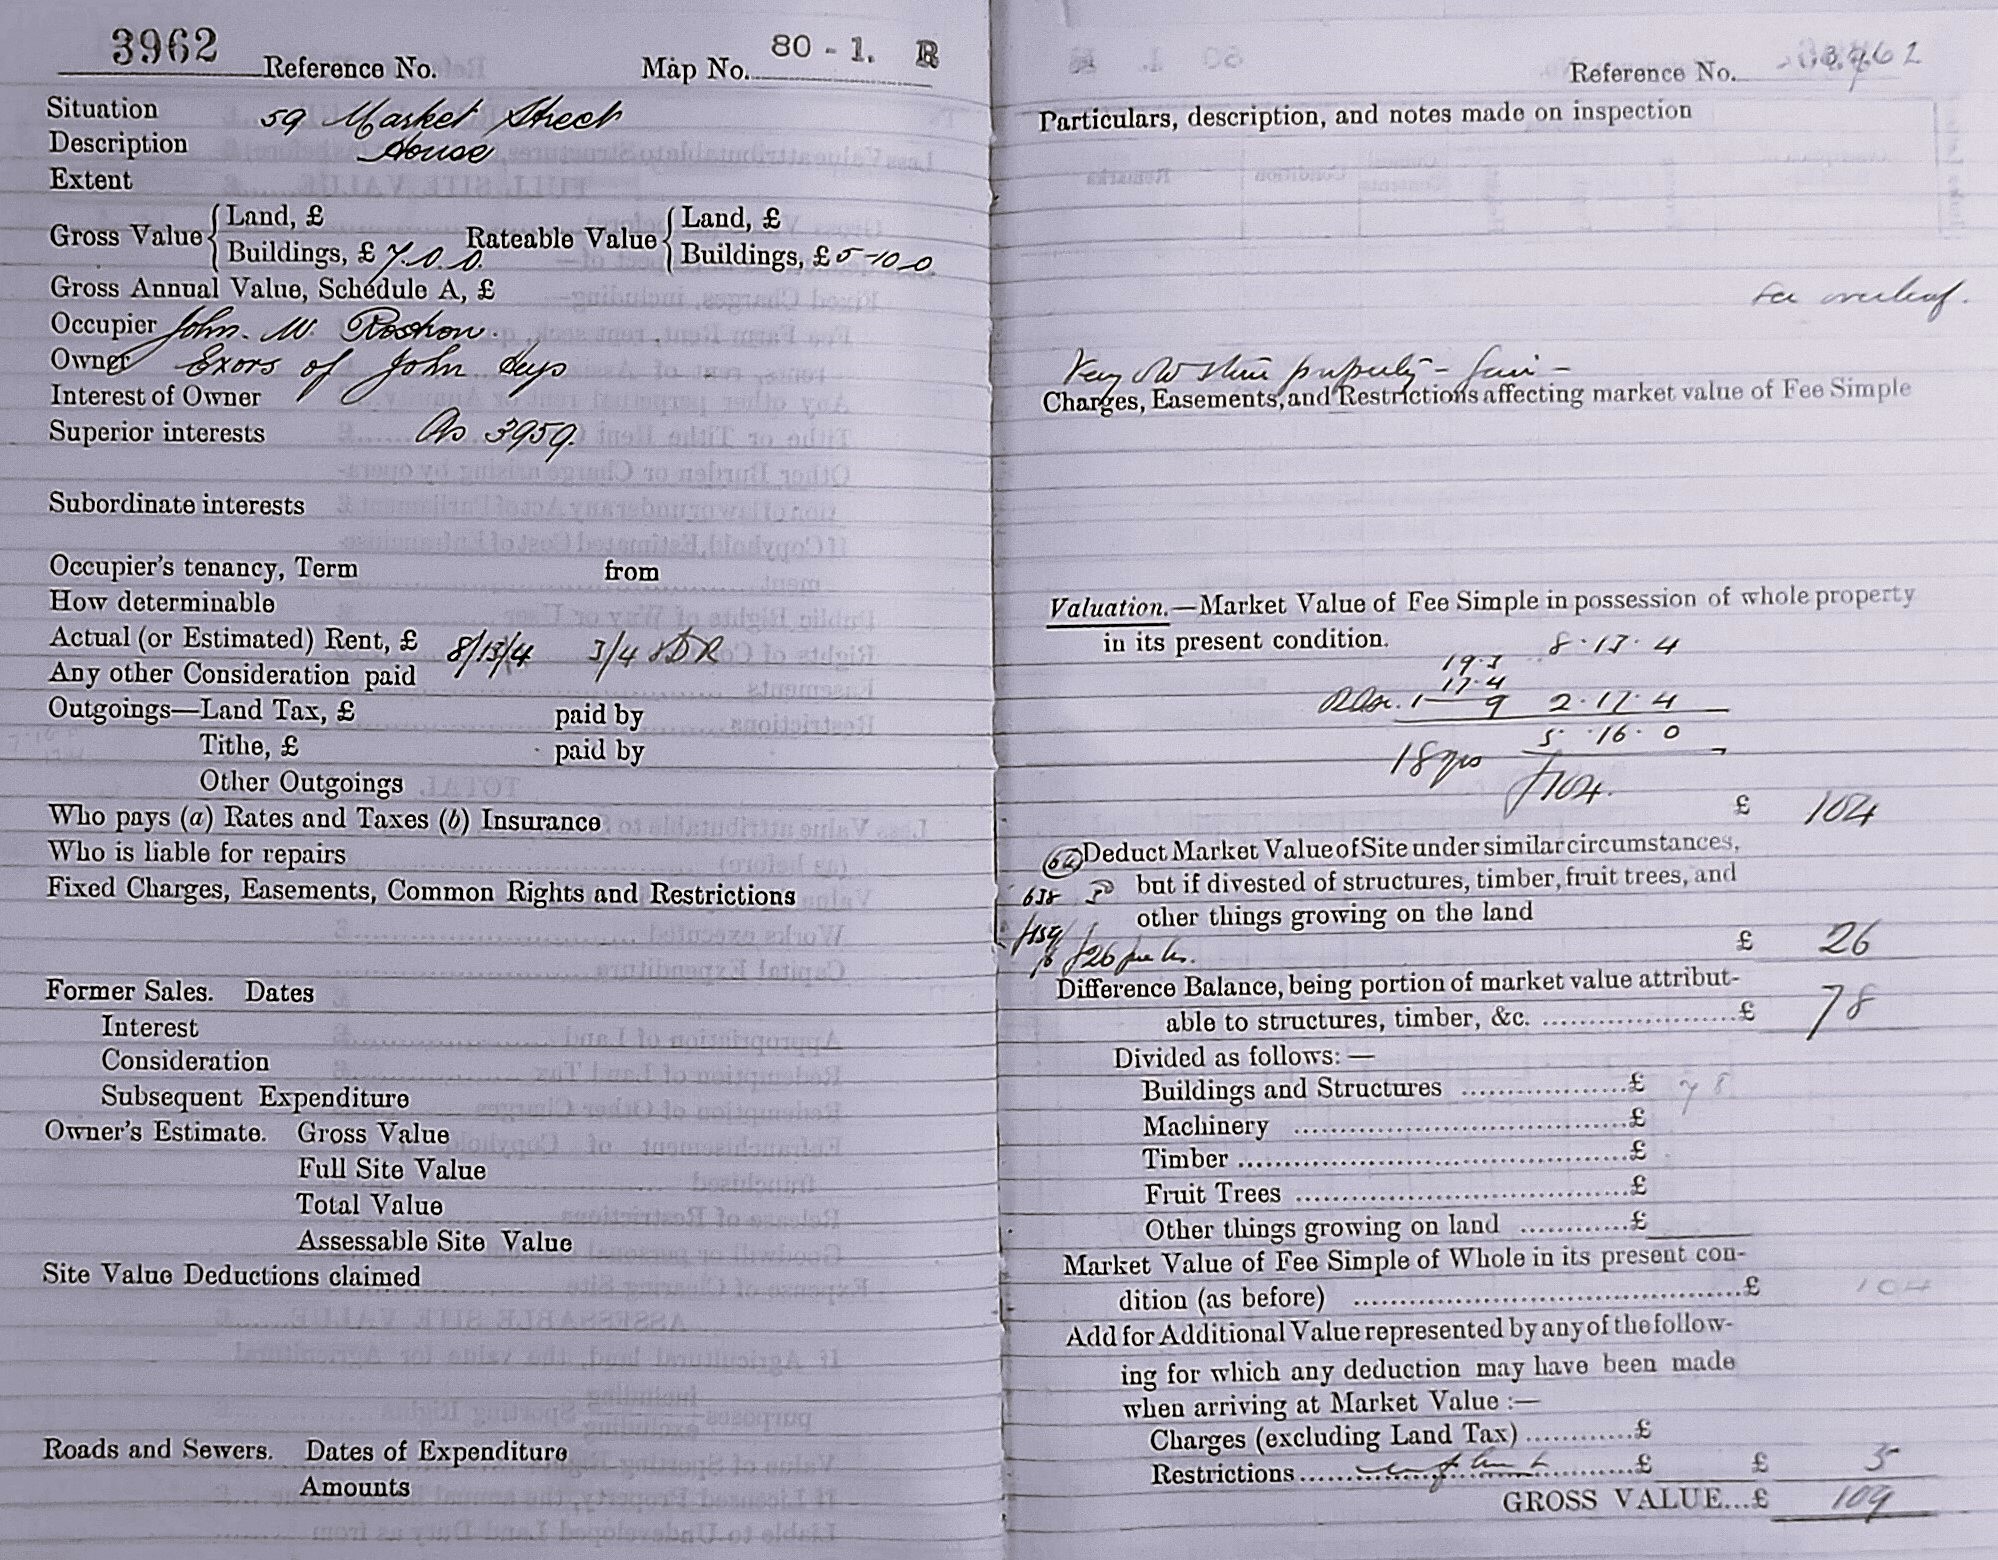 3962 Reference No. Map No. 80 - 1. R
Situation 59 Market Street
Description House
Extent
Gross Value { Land, £ Rateable Value { Land, £
Buildings, £ 7. 0. 0. Buildings, £ 5-10-0
Gross Annual Value, Schedule A, £
Occupier John. W.
Owner Exors of John
Interest of Owner
Superior interests As 3959.
Subordinate interests
Occupier's tenancy, Term from
How determinable
Actual (or Estimated) Rent, £ 8/13/4 3/4
Any other Consideration paid
Outgoings—Land Tax, £ paid by
Tithe, £ paid by
Other Outgoings
Who pays (a) Rates and Taxes (b) Insurance
Who is liable for repairs
Fixed Charges, Easements, Common Rights and Restrictions
Former Sales. Dates
Interest
Consideration
Subsequent Expenditure
Owner's Estimate. Gross Value
Full Site Value
Total Value
Assessable Site Value
Site Value Deductions claimed
Roads and Sewers. Dates of Expenditure
Amounts
Reference No. 3962
Particulars, description, and notes made on inspection
See overleaf.
Very old property - fair -
Charges, Easements, and Restrictions affecting market value of Fee Simple
Valuation.—Market Value of Fee Simple in possession of whole property
in its present condition. 8 . 13 . 4
19.3
17.4
1 9 2 . 17 . 4
5 . 16 . 0
18 yrs £104.
£ 104
Deduct Market Value of Site under similar circumstances,
but if divested of structures, timber, fruit trees, and
other things growing on the land
£ 26
£26
Difference Balance, being portion of market value attribut-
able to structures, timber, &c. £ 78
Divided as follows:—
Buildings and Structures £ 78
Machinery £
Timber £
Fruit Trees £
Other things growing on land £
Market Value of Fee Simple of Whole in its present con-
dition (as before) £ 104
Add for Additional Value represented by any of the follow-
ing for which any deduction may have been made
when arriving at Market Value :—
Charges (excluding Land Tax) £
Restrictions £ £ 5
GROSS VALUE...£ 109